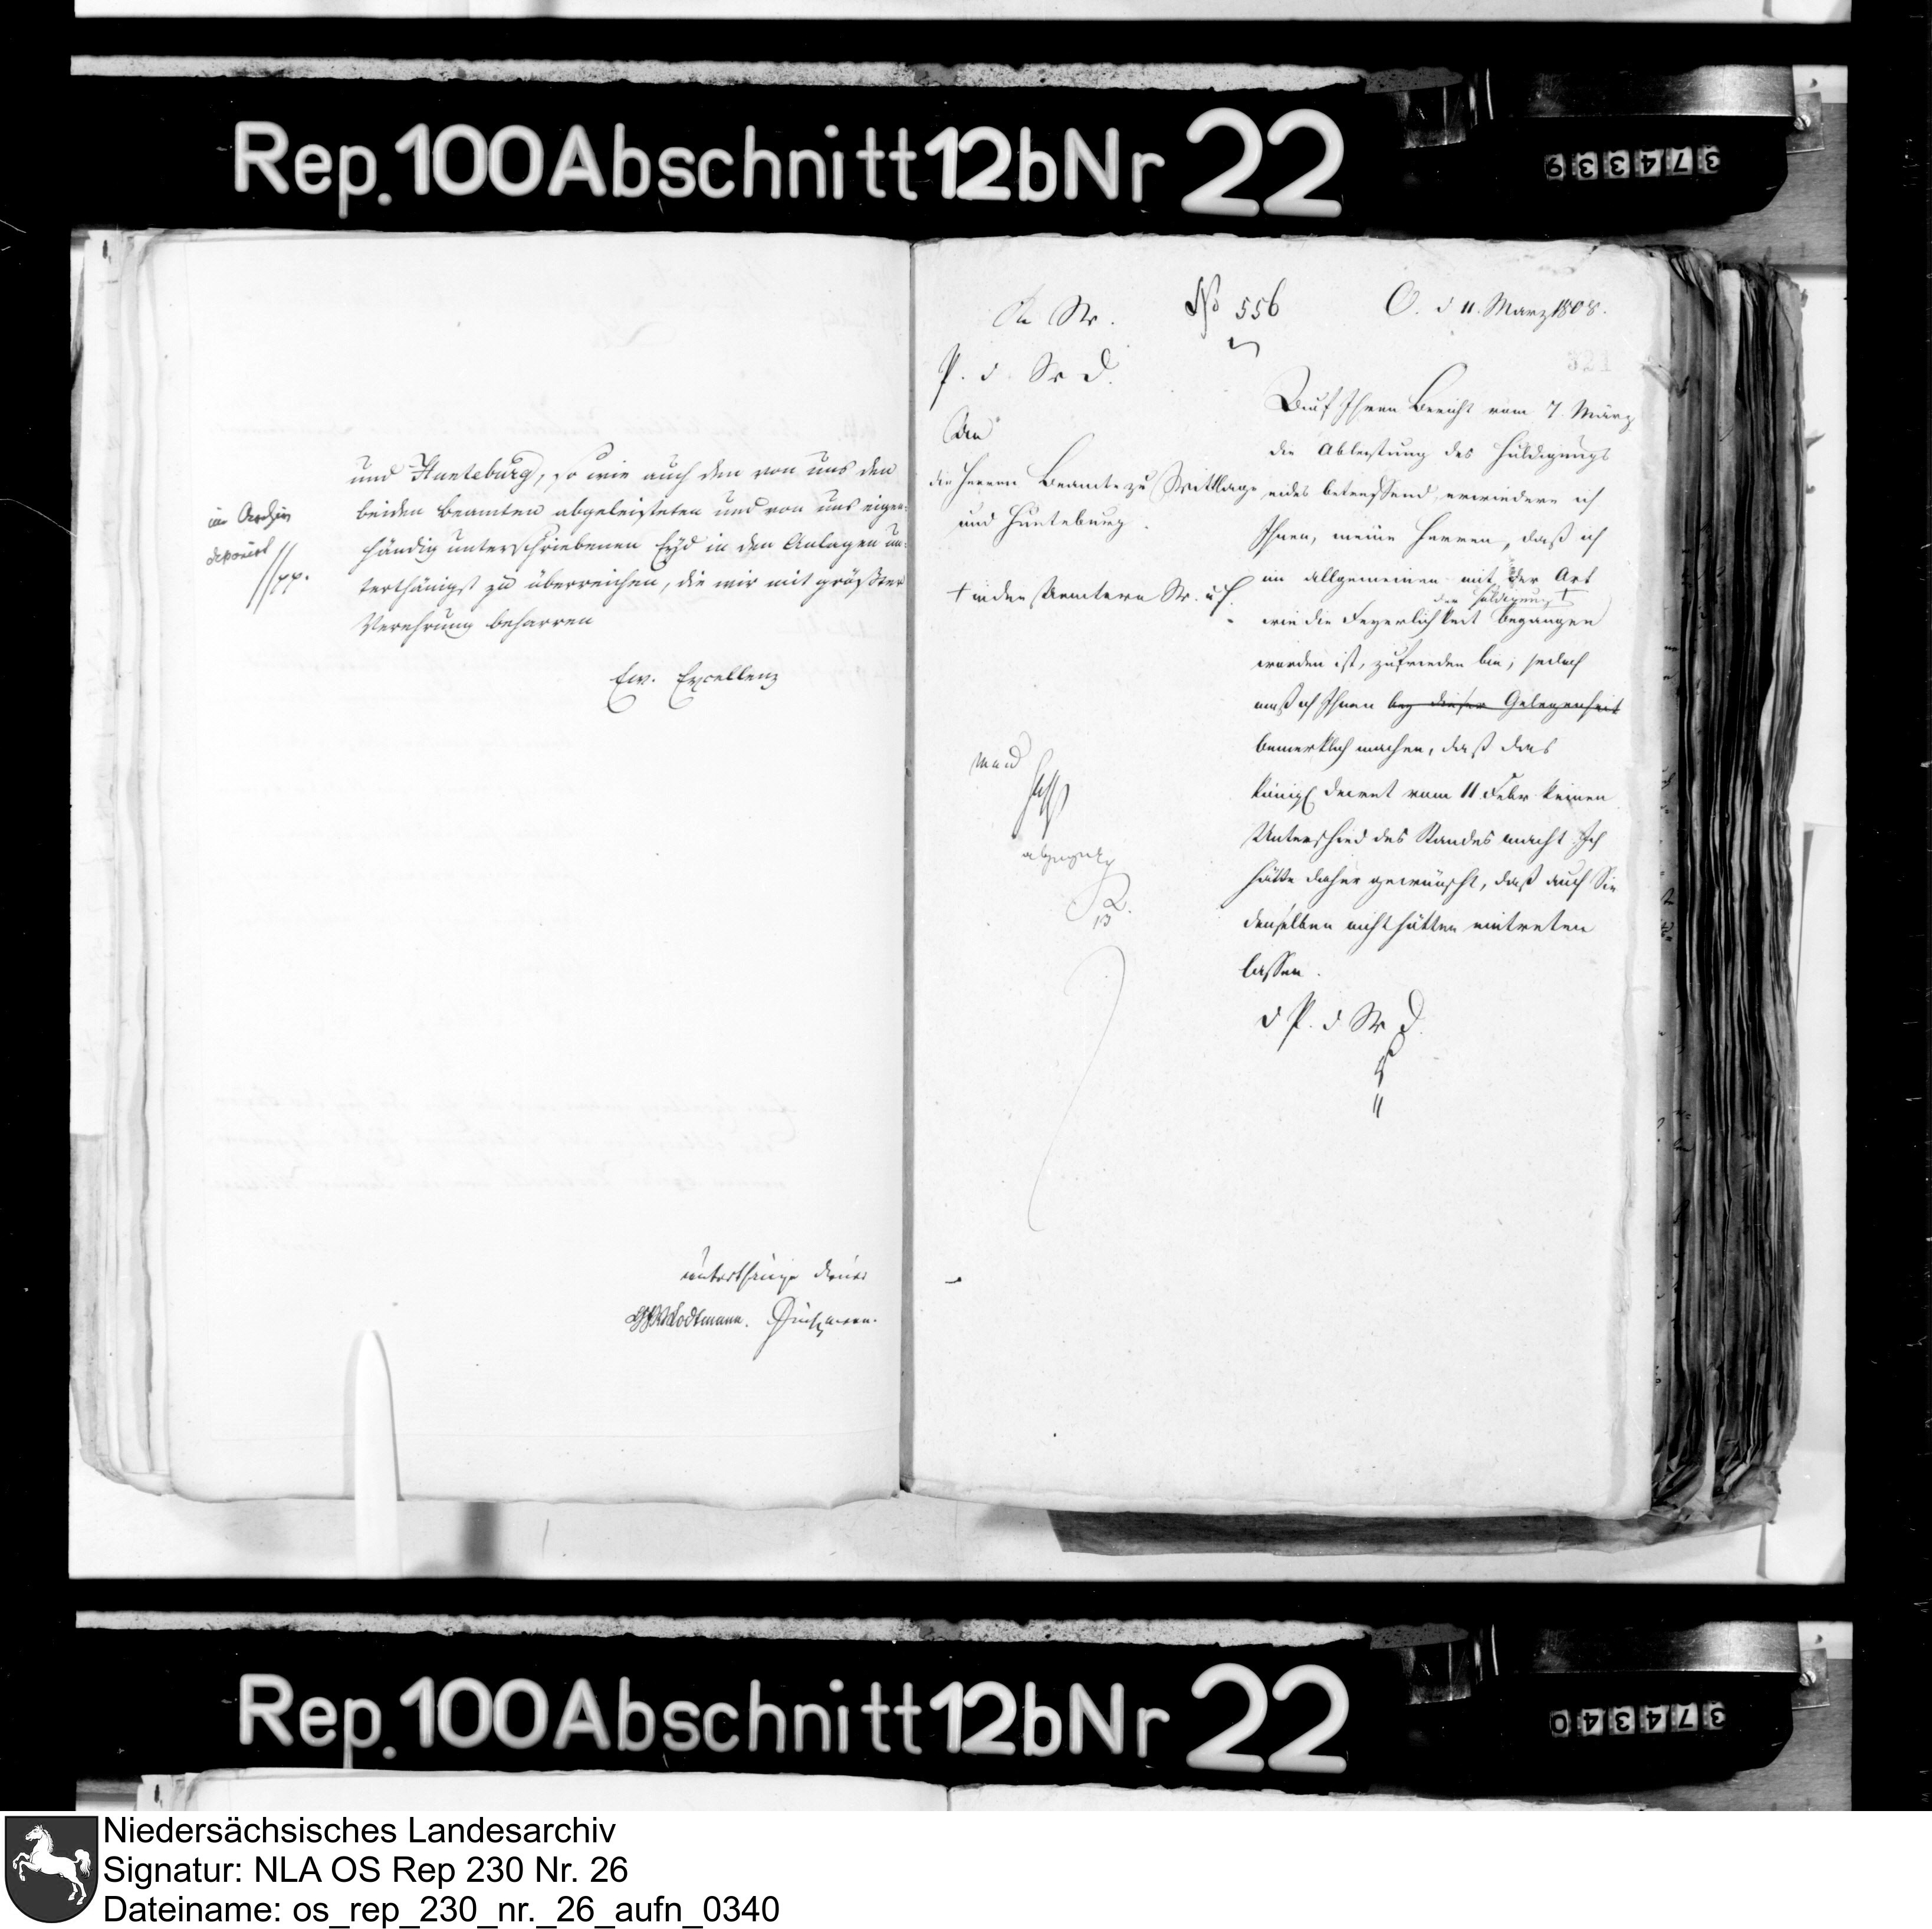 Rep. 100 Abschnitt 12b Nr 22
374339
und Hunteburg, so wie auch den von uns den
beiden Beamten abgeleisteten und von uns eigen-
händig unterschriebenen Eyd in den Anlagen un-
terthänigst zu überreichen, die wir mit größter
Verehrung beharren
Ew. Excellenz
im Archiv
deponirt
pp.
unterthänige Diener
Lodtmann.
No 556
O. d 11. Marz 1808.
321
P. d.
An
die Herren Beamte zu Wittlage
und Hunteburg.
† in den Aemtern W. u H.
Auf Ihren Bericht vom 7. März
die Ableistung des Huldigungs
eides betreffend, erwiedere ich
Ihnen, meine Herren, daß ich
im allgemeinen mit der Art
der Huldigung †
wie die Feyerlichkeit begangen
worden ist, zufrieden bin; jedoch
muß ich Ihnen bey dieser Gelegenheit
bemerklich machen, daß das
königl Decret vom 11 Febr keinen
Unterschied des Standes macht. Ich
hätte daher gewünscht, daß auch Sie
denselben nicht hätten eintreten
lassen.
d P. d
11
Rep. 100 Abschnitt 12b Nr 22
374340
Niedersächsisches Landesarchiv
Signatur: NLA OS Rep 230 Nr. 26
Dateiname: os_rep_230_nr._26_aufn_0340